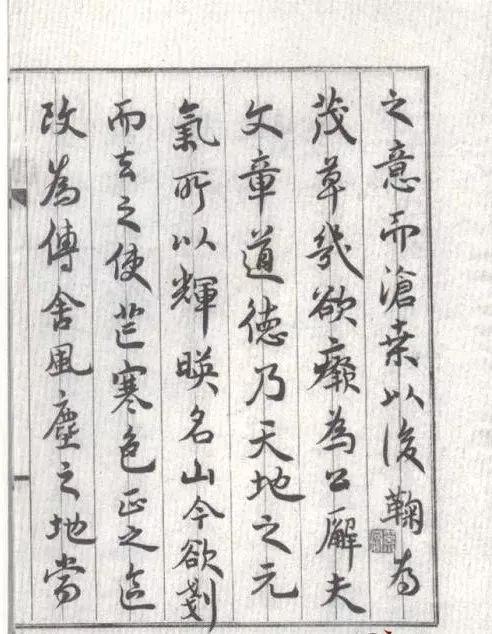 之意而滄桒以後鞠為
茂草幾欲癈為公廨夫
文章道德乃天地之元
氣所以輝暎名山今欲剗
而去之使芒寒色正之區
改為傳舍風塵之地當